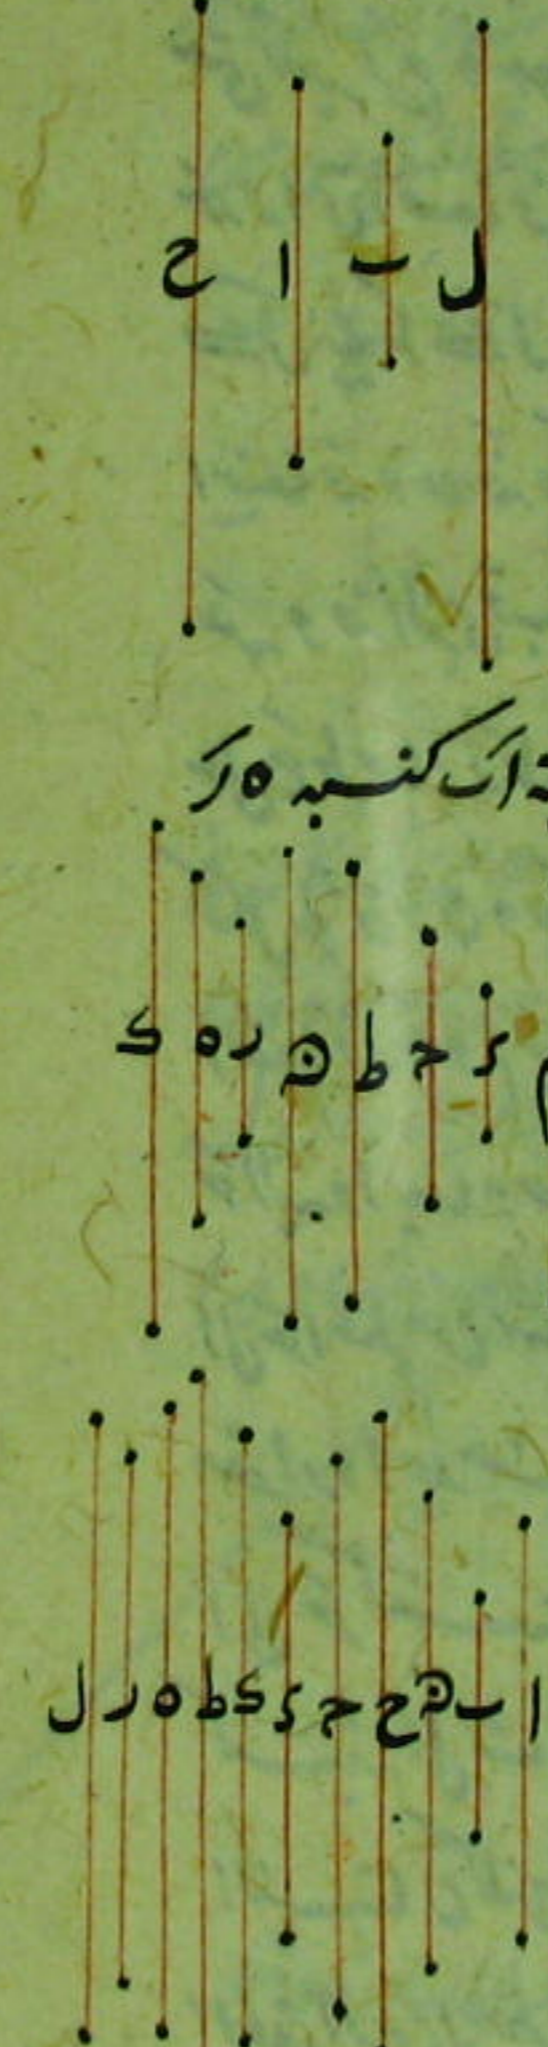 ل ب ا ح
اب كنسبه ه ر
ح ط ه ر ه ك
ا ب ه ح ح ك ط ه ر ل